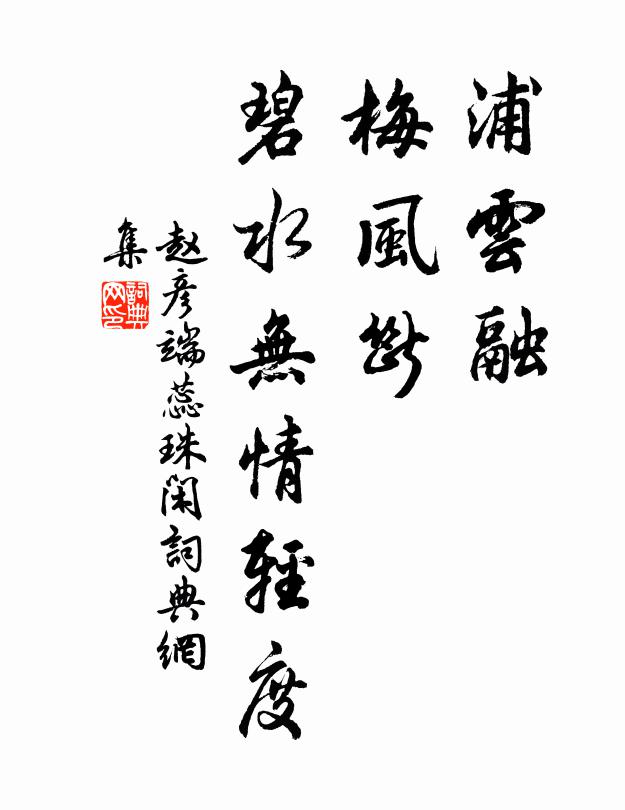 浦雲融
梅風斷
碧水無情輕度
赵彦端蕊珠閑詞典網
集
詞典网印